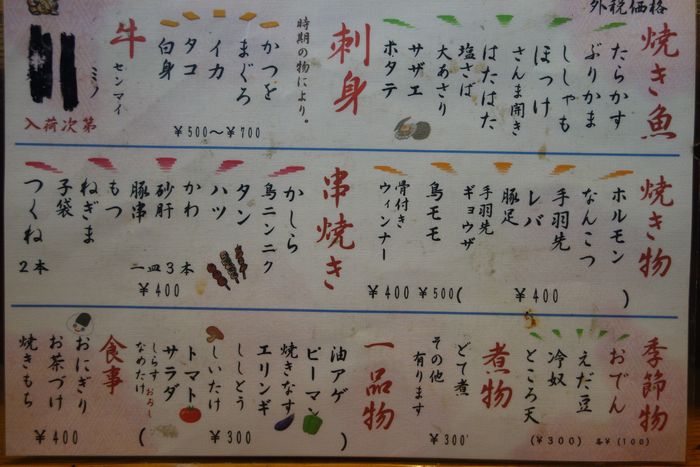 外税価格
焼き魚
たらかす
ぶりかま
ししゃも
ほっけ
さんま開き
はたはた
塩さば
大あさり
サザエ
ホタテ
刺身
時期の物により。
かつを
まぐろ
イカ
タコ
白身
￥500～￥700
牛
センマイ
ミノ
入荷次第
焼き物
ホルモン
なんこつ
手羽先
レバ
豚足
手羽先
ギョウザ
鳥モモ
骨付き
ウィンナー
￥400 ￥500( ￥400 )
串焼き
かしら
鳥ニンニク
タン
ハツ
かわ
砂肝
豚串
もつ
ねぎま
子袋
つくね
2本
一皿3本
￥400
季節物
おでん
えだ豆
冷奴
ところ天
(￥300) 各￥(100)
煮物
どて煮
その他
有ります
￥300
一品物
油アゲ
ピーマン
焼きなす
エリンギ
ししとう
しいたけ
トマト
サラダ
しらすおろし
なめたけ
( ￥300 )
食事
おにぎり
お茶づけ
焼きもち
￥400